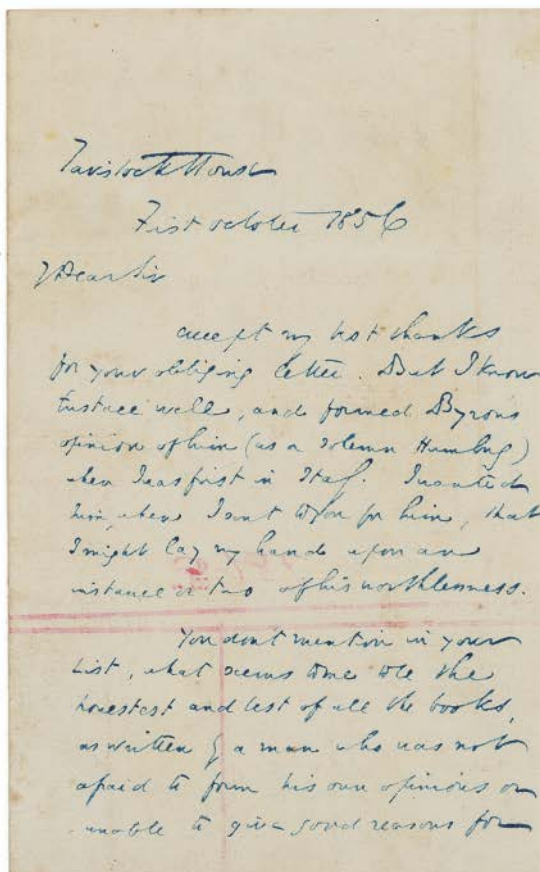 Tavistock House
First October 1856
Dear Sir
accept my best thanks
for your obliging letter. But I know
Eustace well, and formed Byrons
opinion of him (as a solemn Humbug)
when I was first in Italy. I wanted
him, when I sent to you for him, that
I might lay my hand upon an
instance or two of his worthlessness.
You dont mention in your
List, what seems to me to be the
honestest and best of all the books,
as written by a man who was not
afraid to form his own opinions or
unable to give good reasons for